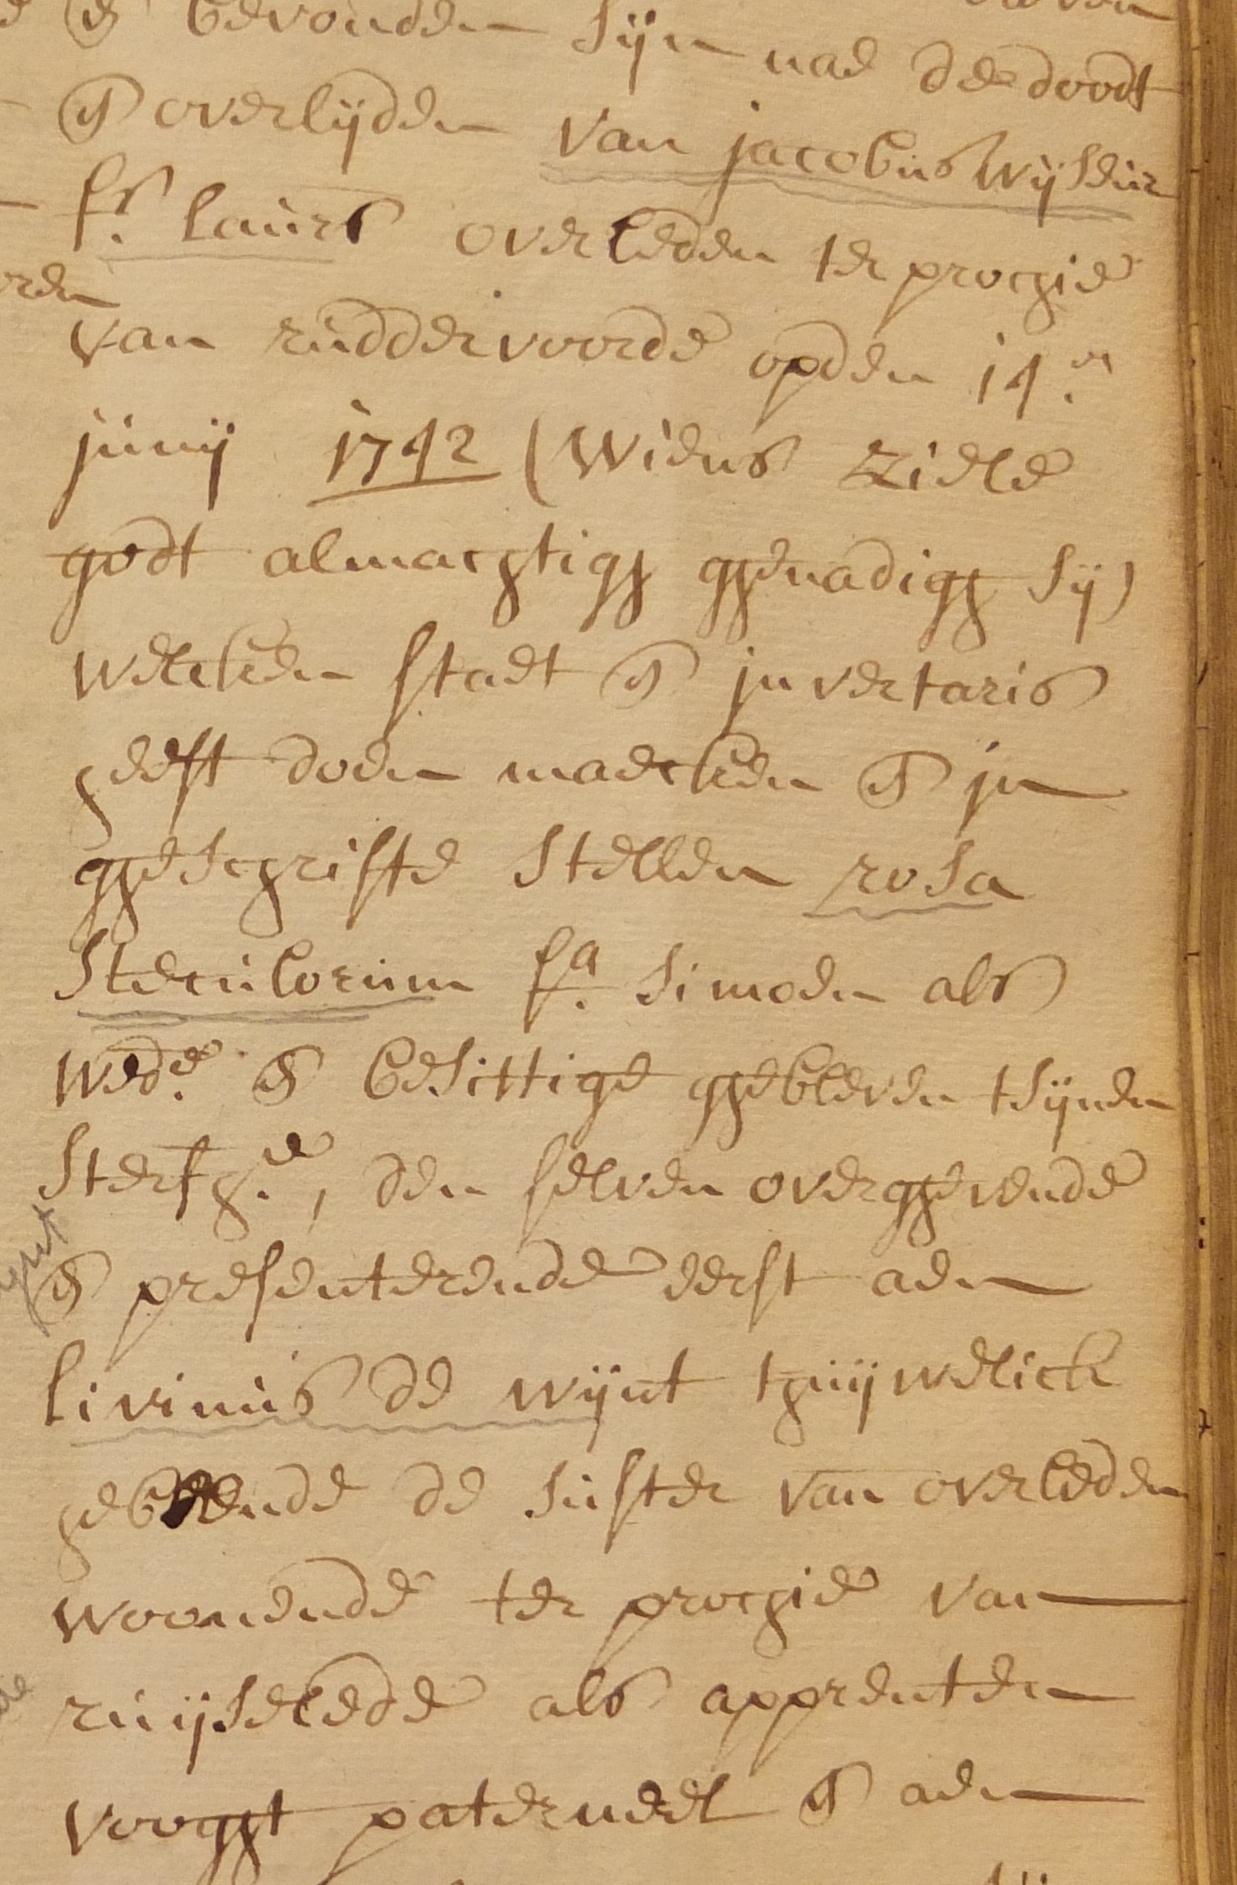 en bevonden sijn nae de doodt
en overlijden van jacobus wijseur
fs. laurs overleden ter prochie
van ruddervoorde opden 14.en
junij 1742 (wiens ziele
godt almachtigh ghenadigh sij)
welcken staet en invertaris
heeft doen maecken en in
gheschrifte stellen rosa
steculorum fa. simoen als
wede. en besittige ghebleven tsijnen
sterfh.se, den selven overghevende
en presenterende eerst aen
livinus de wijnt thuijwelick
hebbende de suster van overleden
woonende ter prochie van
ruijselede als apprenten
vooght paterneel en aen